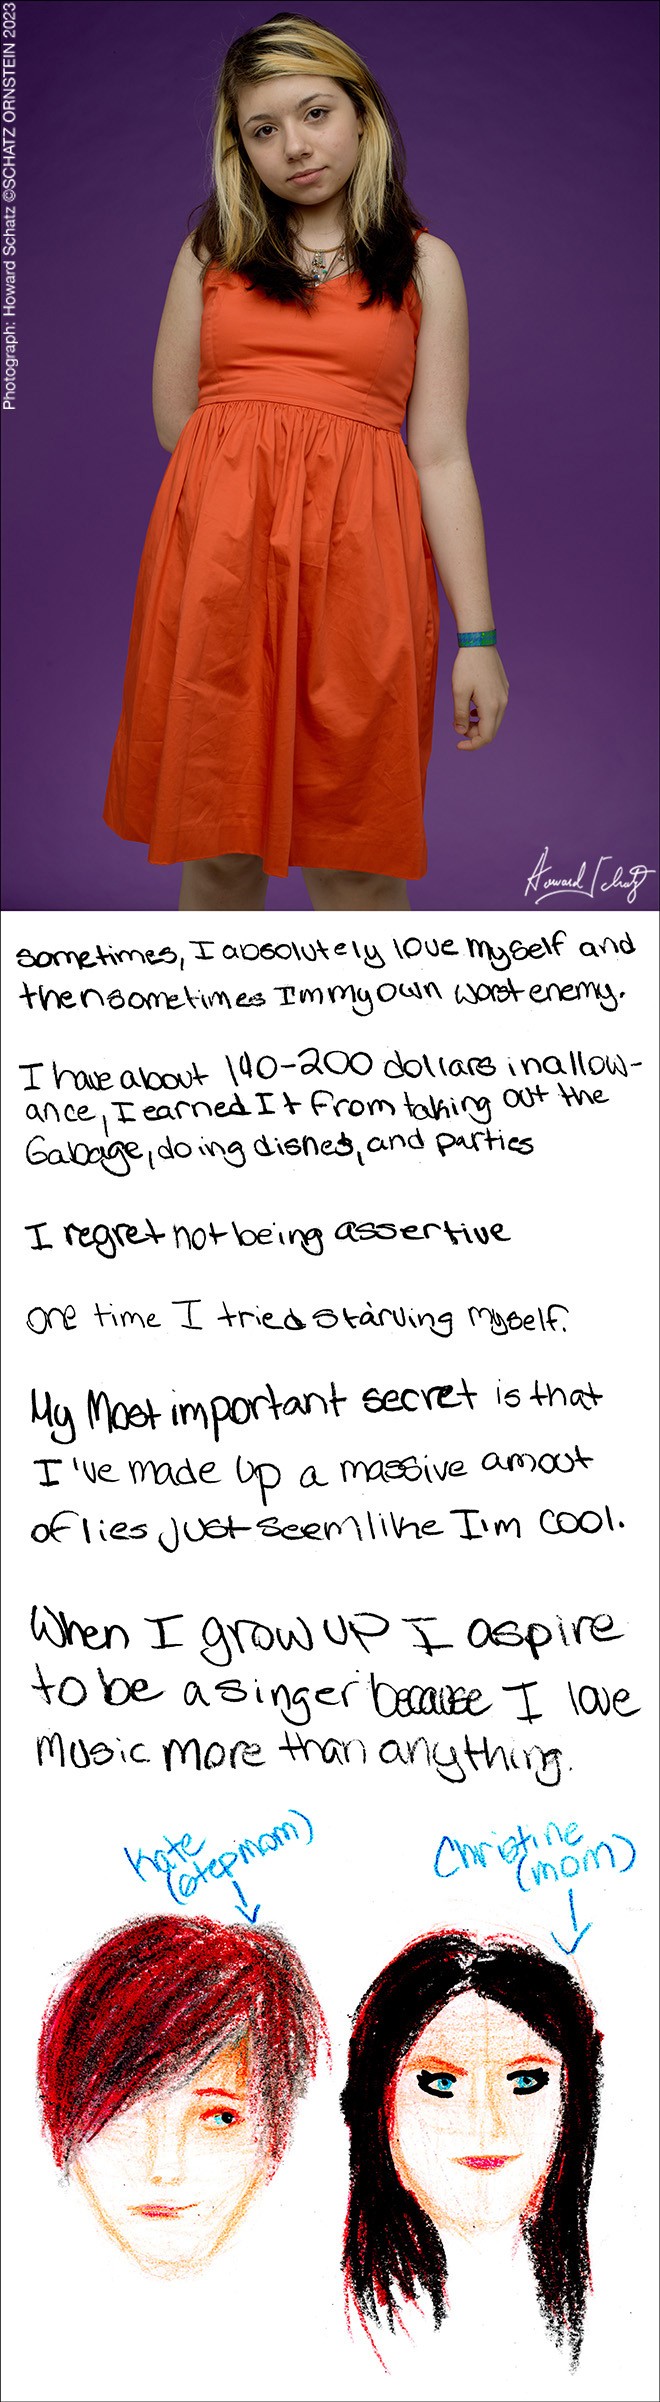 Photograph: Howard Schatz ©SCHATZ ORNSTEIN 2023
Howard Schatz
sometimes, I absolutely love myself and
then sometimes I'm my own worst enemy.
I have about 140-200 dollars in allow-
ance, I earned It from taking out the
Gabage, doing dishes, and parties
I regret not being assertive
one time I tried starving myself.
My Most important secret is that
I've made up a massive amout
of lies just seem like I'm cool.
When I grow up I aspire
to be a singer because I love
music more than anything.
Kate
(stepmom)
Christine
(mom)